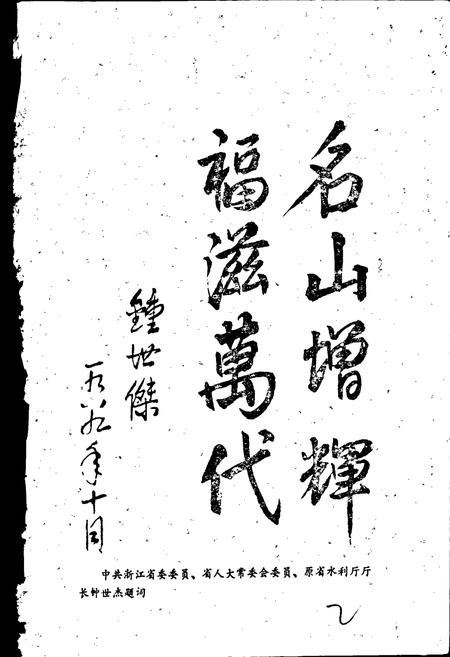 名山增輝
福滋萬代
鍾世傑
一九八九年十月
中共浙江省委委员、省人大常委会委员、原省水利厅厅
长钟世杰题词